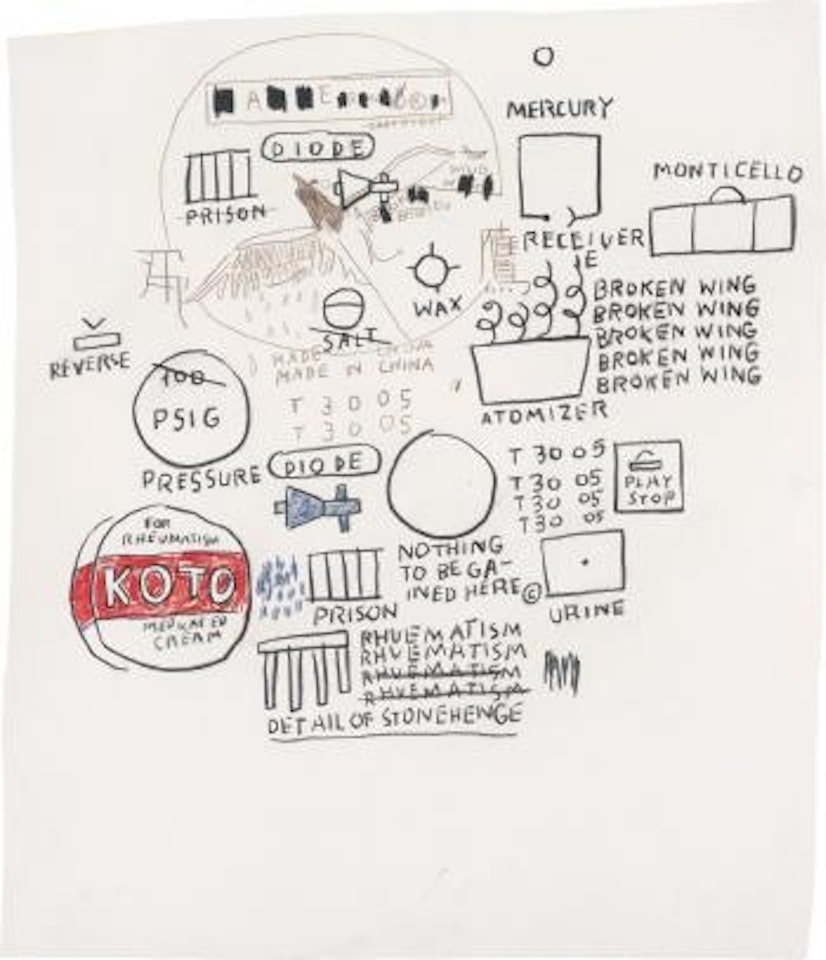 DIODE
PRISON
MERCURY
MONTICELLO
RECEIVER
E
WAX
SALT
BROKEN WING
BROKEN WING
BROKEN WING
BROKEN WING
BROKEN WING
ATOMIZER
REVERSE
100
PSIG
PRESSURE
MADE
CHINA
MADE IN CHINA
T 3 0 05
T 3 0 05
DIODE
T 30 05
T 30 05
T 30 05
T 30 05
PLAY
STOP
FOR
RHEUMATISM
KOTO
CREAM
PRISON
NOTHING
TO BE GA-
INED HERE ©
URINE
RHUEMATISM
RHUEMATISM
RHUEMATISM
RHUEMATISM
DETAIL OF STONEHENGE